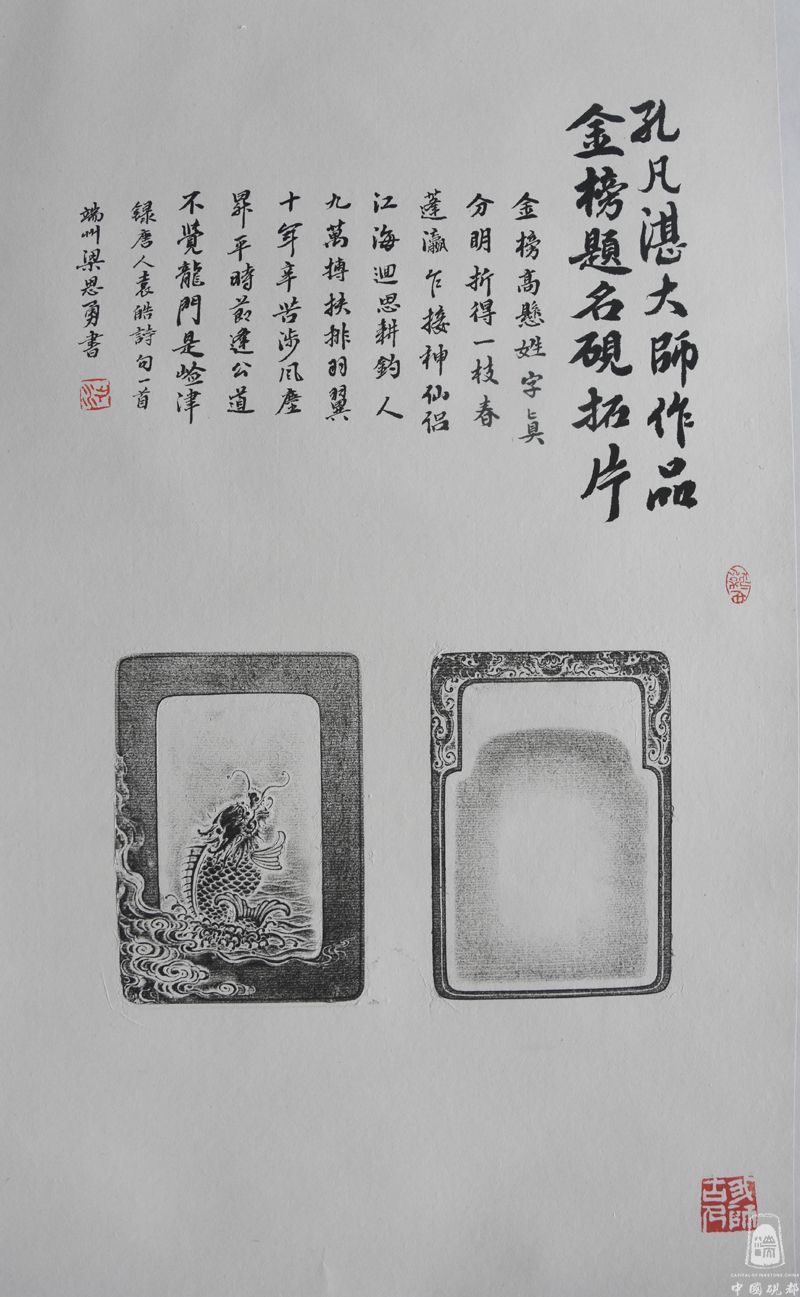 孔凡湛大師作品
金榜題名硯拓片
金榜高懸姓字真
分明折得一枝春
蓬瀛乍接神仙侣
江海迴思耕釣人
九萬摶扶排羽翼
十年辛苦涉风塵
昇平時節逢公道
不覺龍門是崄津
録唐人袁皓詩句一首
端州梁思勇書
我師
古人
CAPITAL OF INKSTONE, CHINA
中國硯都